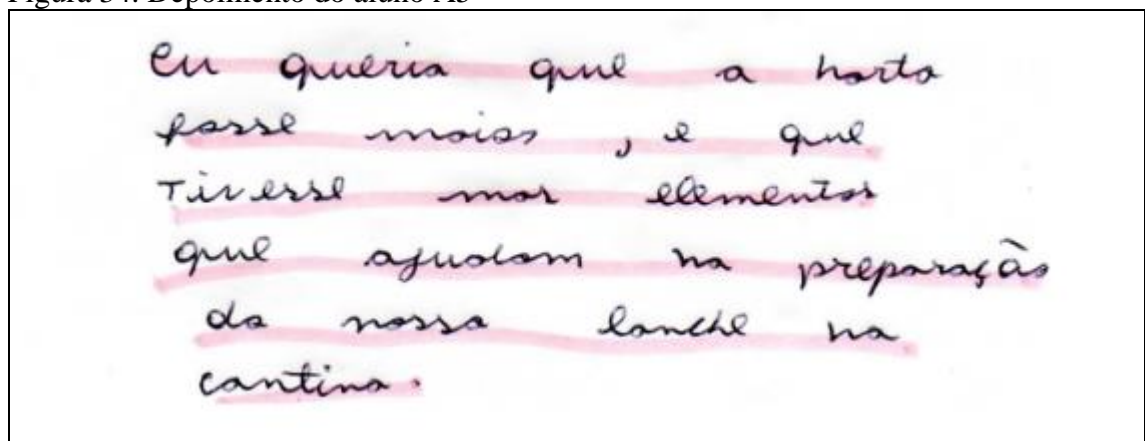 Figura 34: Depoimento do aluno A3
Eu queria que a horta
fosse maior, e que
Tivesse mas elementos
que ajudam na preparação
da nossa lanche na
cantina.